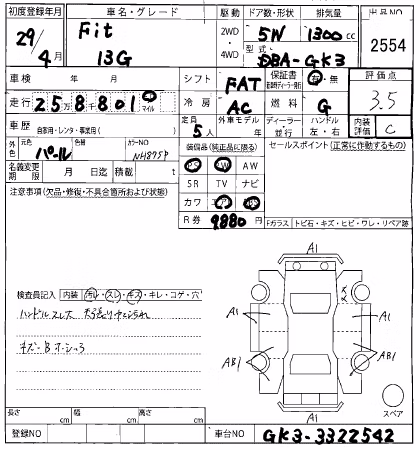 初度登録年月 車名・グレード 駆動 ドア数・形状 排気量 出品NO
29/4月 Fit 13G 2WD 4WD 5W 1300cc 2554
型式 DBA-GK3
車検 年 月 シフト FAT 保証書 有・無 評価点
走行 258801 km マイル 冷房 AC 燃料 G 3.5
車歴 自家用・レンタ・事業用( ) 定員 5人 外車モデル 年 ディーラー・並行 ハンドル 左・右 内装評価 C
外色 元色 パール 色替 カラーNO NH875P 装備品(純正品に限る) セールスポイント(正常に作動するもの)
名義変更期限 月 日迄 積載 t PS PW AW
注意事項(欠品・修復・不具合箇所および状態) SR TV ナビ
カワ エアB
R券 9880 円
Fガラス トビ石・キズ・ヒビ・ワレ・リペア跡
A1
検査員記入 内装 汚レ・スレ・キズ・キレ・コゲ・穴
ハンドルスレ大
A1 A1
AB1 AB1
A1
スペア
長さ cm 幅 cm 高さ cm
登録NO 車台NO GK3-3322542